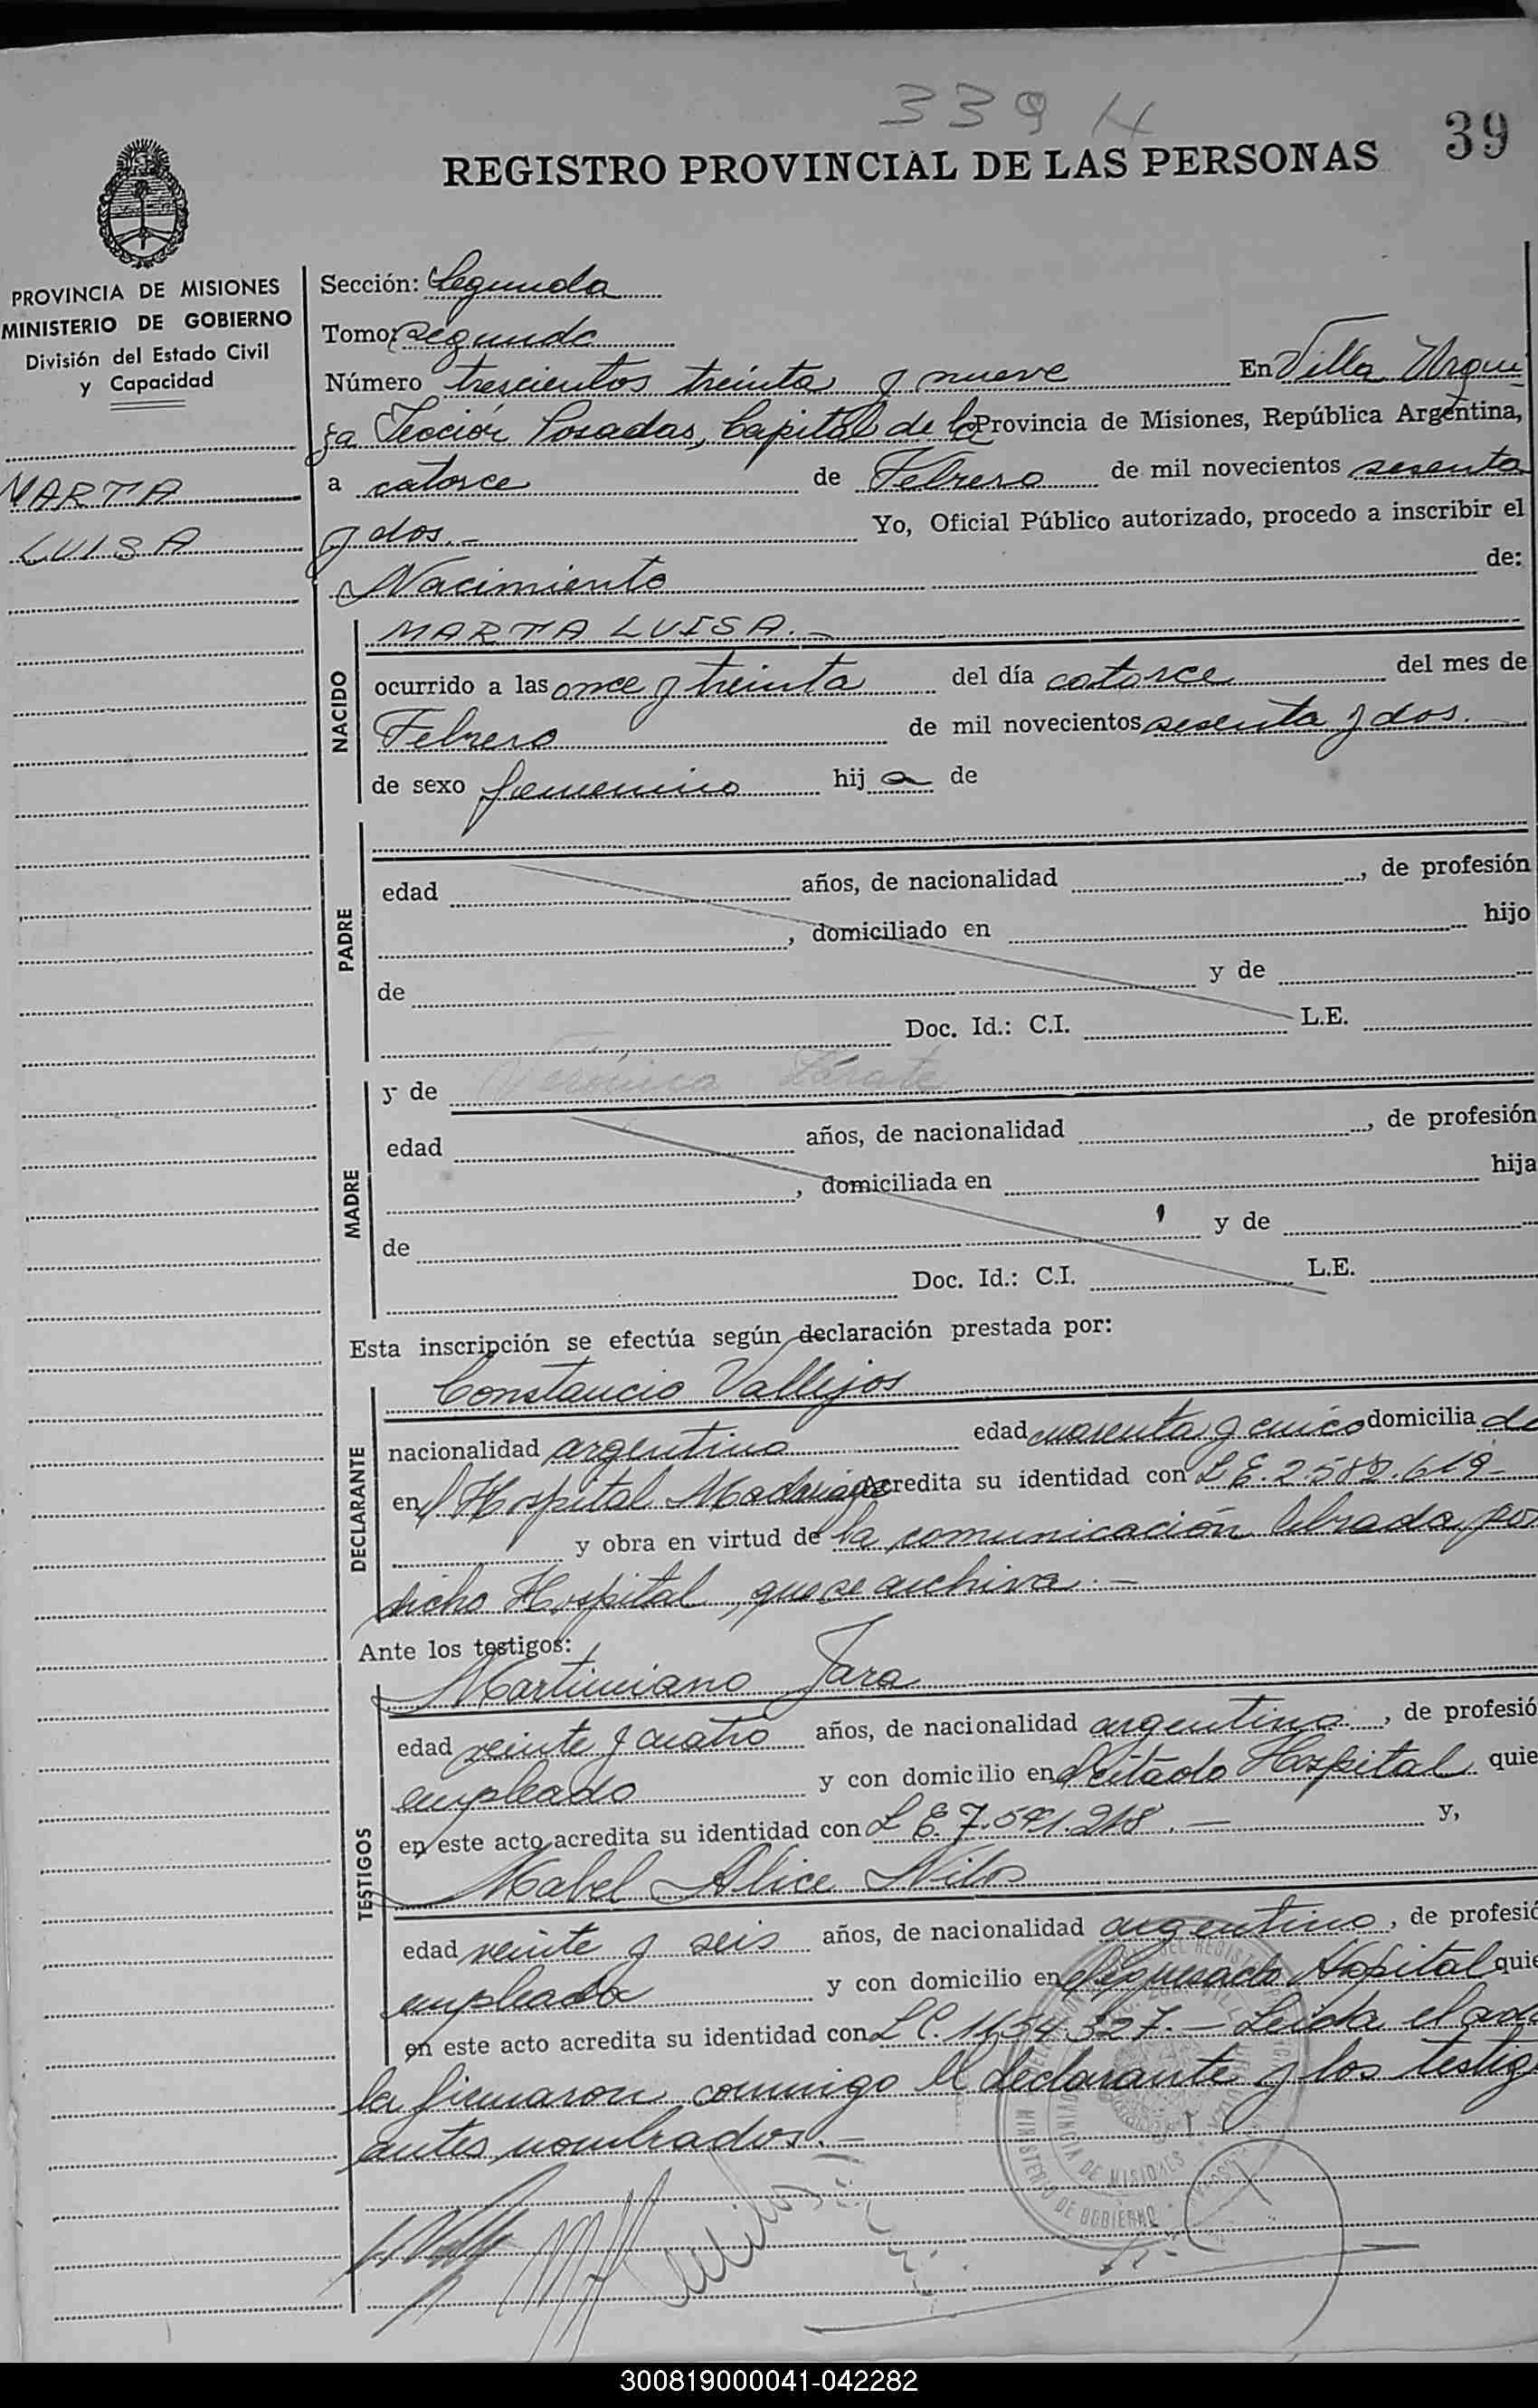 339 N
39
REGISTRO PROVINCIAL DE LAS PERSONAS
PROVINCIA DE MISIONES
MINISTERIO DE GOBIERNO
División del Estado Civil
y Capacidad
MARTA
LUISA
Sección: Segunda
Tomo: Segundo
Número trescientos treinta y nueve En Villa Urqui
za Sección Posadas, Capital de la Provincia de Misiones, República Argentina,
a catorce de Febrero de mil novecientos sesenta
y dos.- Yo, Oficial Público autorizado, procedo a inscribir el
Nacimiento de:
NACIDO
MARTA LUISA.-
ocurrido a las once y treinta del día catorce del mes de
Febrero de mil novecientos sesenta y dos.
de sexo femenino hija de
PADRE
edad años, de nacionalidad , de profesión
, domiciliado en hijo
de y de
Doc. Id.: C.I. L.E.
MADRE
y de Verónica Zárate
edad años, de nacionalidad , de profesión
, domiciliada en hija
de y de
Doc. Id.: C.I. L.E.
Esta inscripción se efectúa según declaración prestada por:
DECLARANTE
Constancio Vallejos
nacionalidad argentino edad cuarenta y cinco domicilia do
en el Hospital Madariaga acredita su identidad con L.E.
y obra en virtud de la comunicación librada por
dicho Hospital, que se archiva.-
Ante los testigos:
TESTIGOS
Martiniano Jara
edad veinte y cuatro años, de nacionalidad argentino, de profesió
empleado y con domicilio en el citado Hospital quie
en este acto acredita su identidad con L.E. 7.591.218.- y,
Mabel Alice Nilos
edad veinte y seis años, de nacionalidad argentino, de profesió
empleada y con domicilio en el expresado Hospital quie
en este acto acredita su identidad con L.C. 1.654.327.- Leída el acta
la firmaron conmigo el declarante y los testig
antes nombrados.-
MINISTERIO DE GOBIERNO
PROVINCIA DE MISIONES
300819000041-042282